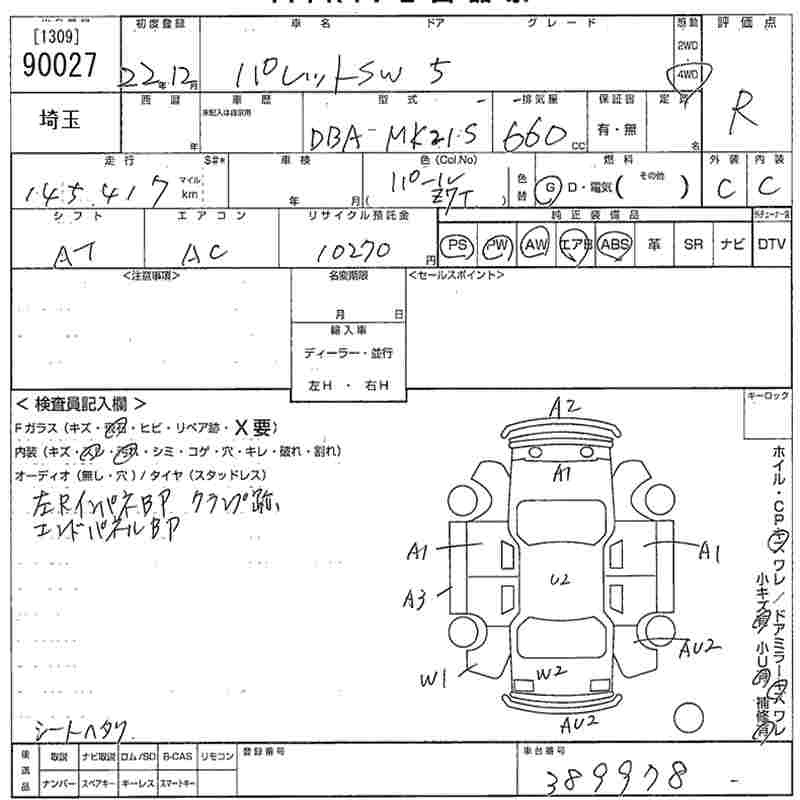 [1309]
90027
初度登録 車名 ドア グレード 駆動 評価点
22年12月 パレットSW 5 2WD 4WD R
埼玉
西暦 車歴 型式 排気量 保証書 定員
年 未記入は自家用 DBA-MK21S 660cc 有・無 名
走行 S#* 車検 色(Col.No) 燃料 外装 内装
145,417 マイル km 年 月 パール Z7T 色替 G D・電気( その他 ) C C
シフト エアコン リサイクル預託金 純正装備品
AT AC 10270円 PS PW AW エアB ABS 革 SR ナビ DTV
<注意事項> 名変期限 <セールスポイント>
月 日
輸入車
ディーラー・並行
左H ・ 右H
キーロック
<検査員記入欄>
Fガラス(キズ・・ヒビ・リペア跡・X要)
内装(キズ・・・シミ・コゲ・穴・キレ・破れ・割れ)
オーディオ(無し・穴)/タイヤ(スタッドレス)
左RインパネBP クランプ跡
エンドパネルBP
A2
A1
A1 A1
U2
A3
AU2
W1 W2
AU2
ホイル・CPキズ ワレ/ドアミラーキズ ワレ
小キズ有 小U有 補修有
シートヘタリ
後送品 取説 ナビ取説 ロム/SD B-CAS リモコン 登録番号 車台番号
ナンバー スペアキー キーレス スマートキー 389978